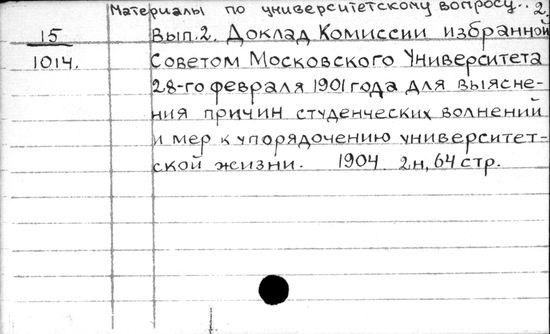 Материалы по университетскому вопросу.. 2
15 Вып. 2. Доклад Комиссии избранной
1014. Советом Московского Университета
28-го февраля 1901 года для выясне-
ния причин студенческих волнений
и мер к упорядочению университет-
ской жизни. 1904. 2н, 64 стр.